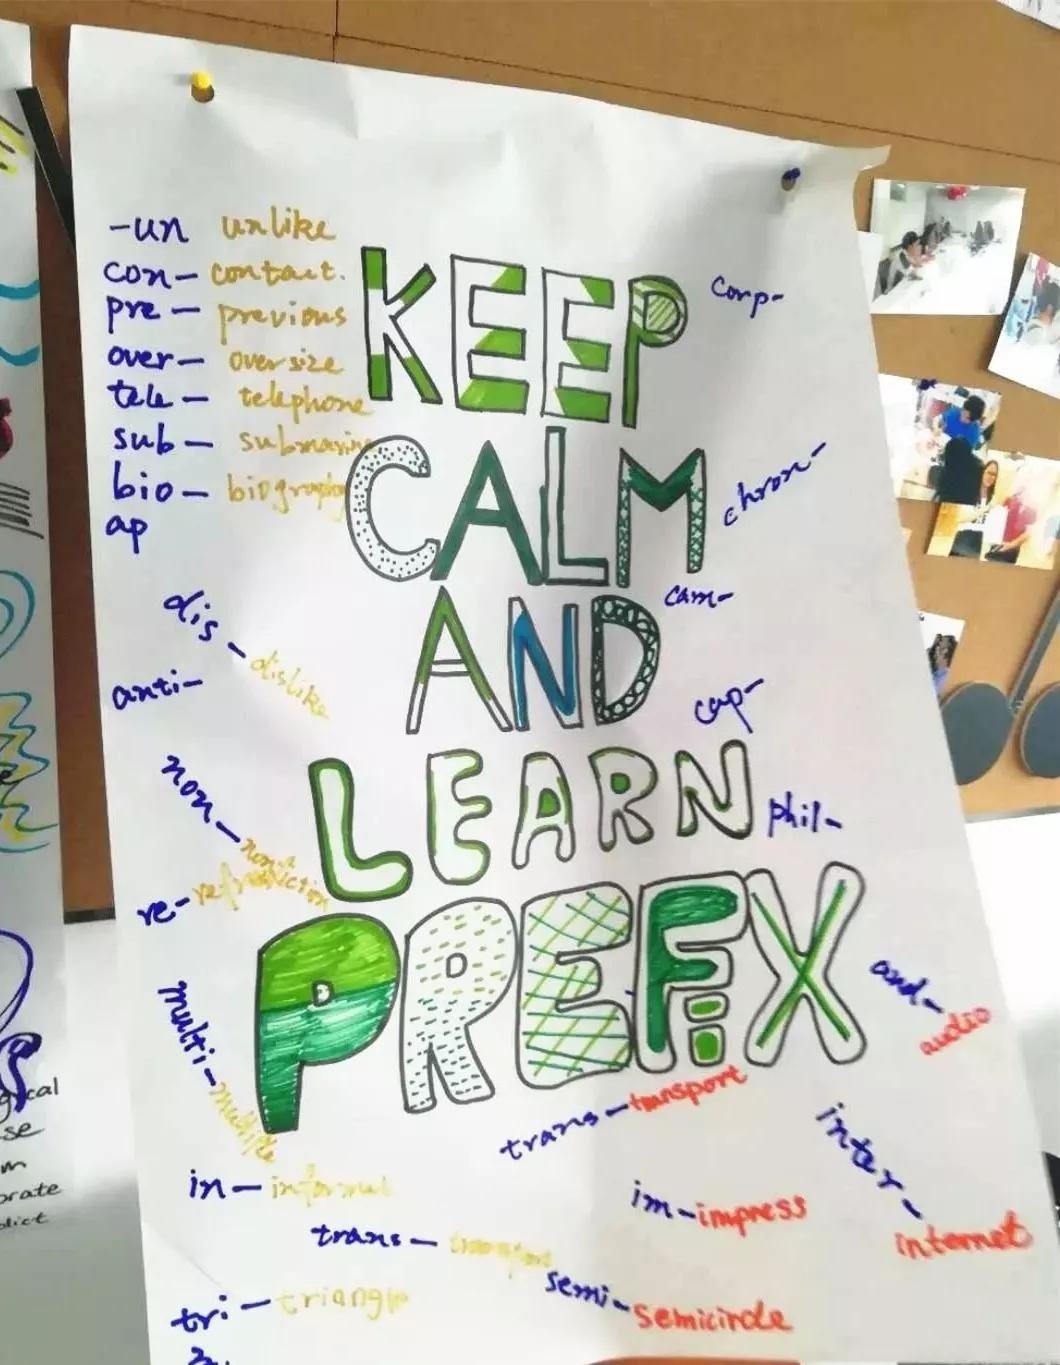 -un unlike
con- contact.
pre- previous
over- oversize
tele- telephone
sub- submarine
bio- biography
ap
dis- dislike
anti-
non-
re-
multi- multiple
in- informal
trans- transport
tri- triangle
KEEP
CALM
AND
LEARN
PREFIX
chron-
cam-
cap-
phil-
audio
trans- transport
inter- internet
im- impress
semi- semicircle
gical
se
m
orate
dict